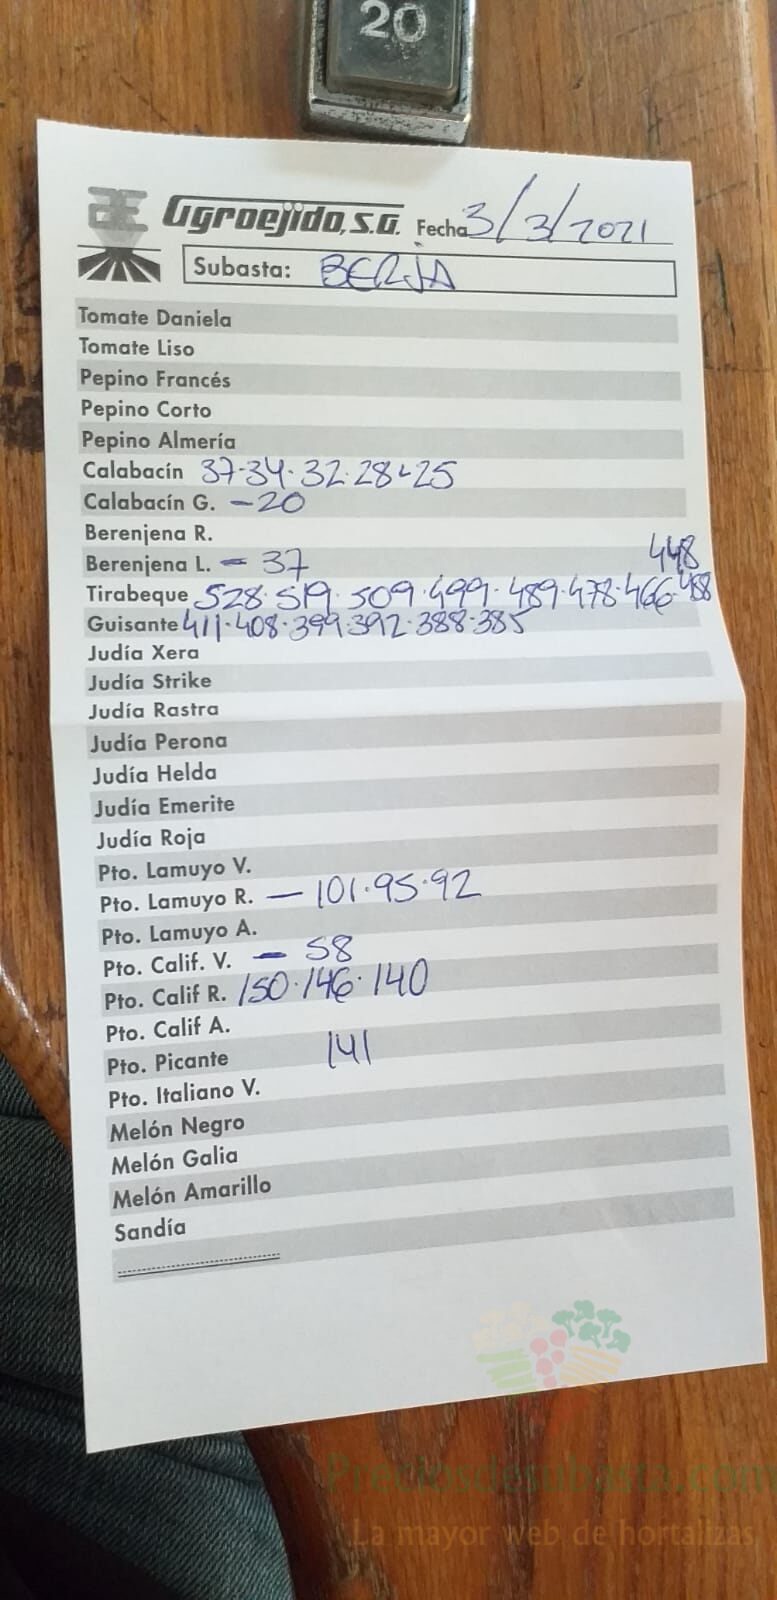 20
Agroejido, S.A. Fecha 3/3/2021
Subasta: BERJA
Tomate Daniela
Tomate Liso
Pepino Francés
Pepino Corto
Pepino Almería
Calabacín 37-34.32.28-25
Calabacín G. -20
Berenjena R.
448
Berenjena L. - 37
Tirabeque 528.519.509.499.489.478.466.458
Guisante 411.408.399.392.388.385
Judía Xera
Judía Strike
Judía Rastra
Judía Perona
Judía Helda
Judía Emerite
Judía Roja
Pto. Lamuyo V.
Pto. Lamuyo R. - 101.95.92
Pto. Lamuyo A.
Pto. Calif. V. - 58
Pto. Calif R. 150.146.140
Pto. Calif A.
Pto. Picante 141
Pto. Italiano V.
Melón Negro
Melón Galia
Melón Amarillo
Sandía
Preciosdesubasta.com
La mayor web de hortalizas